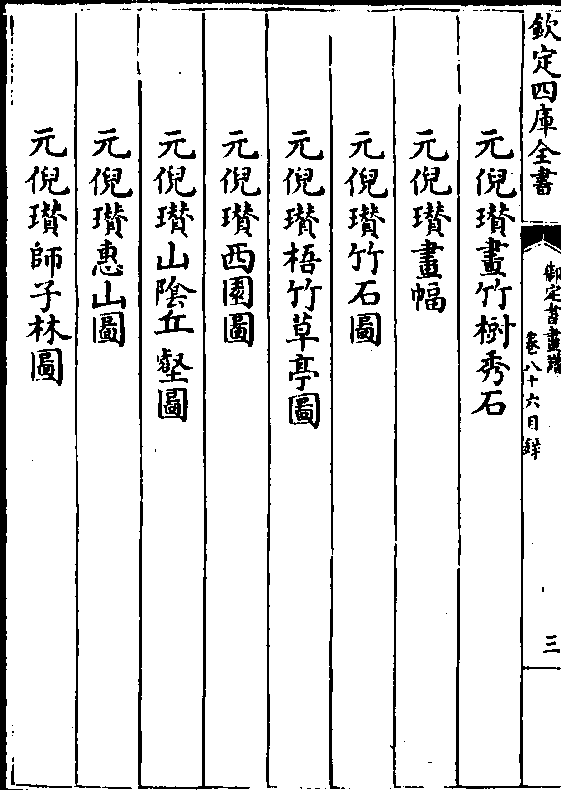 欽定四庫全書
御定書畫譜
卷八十六目錄
三
元倪瓚畫竹樹秀石
元倪瓚畫幅
元倪瓚竹石圖
元倪瓚梧竹草亭圖
元倪瓚西園圖
元倪瓚山陰丘壑圖
元倪瓚惠山圖
元倪瓚師子林圖